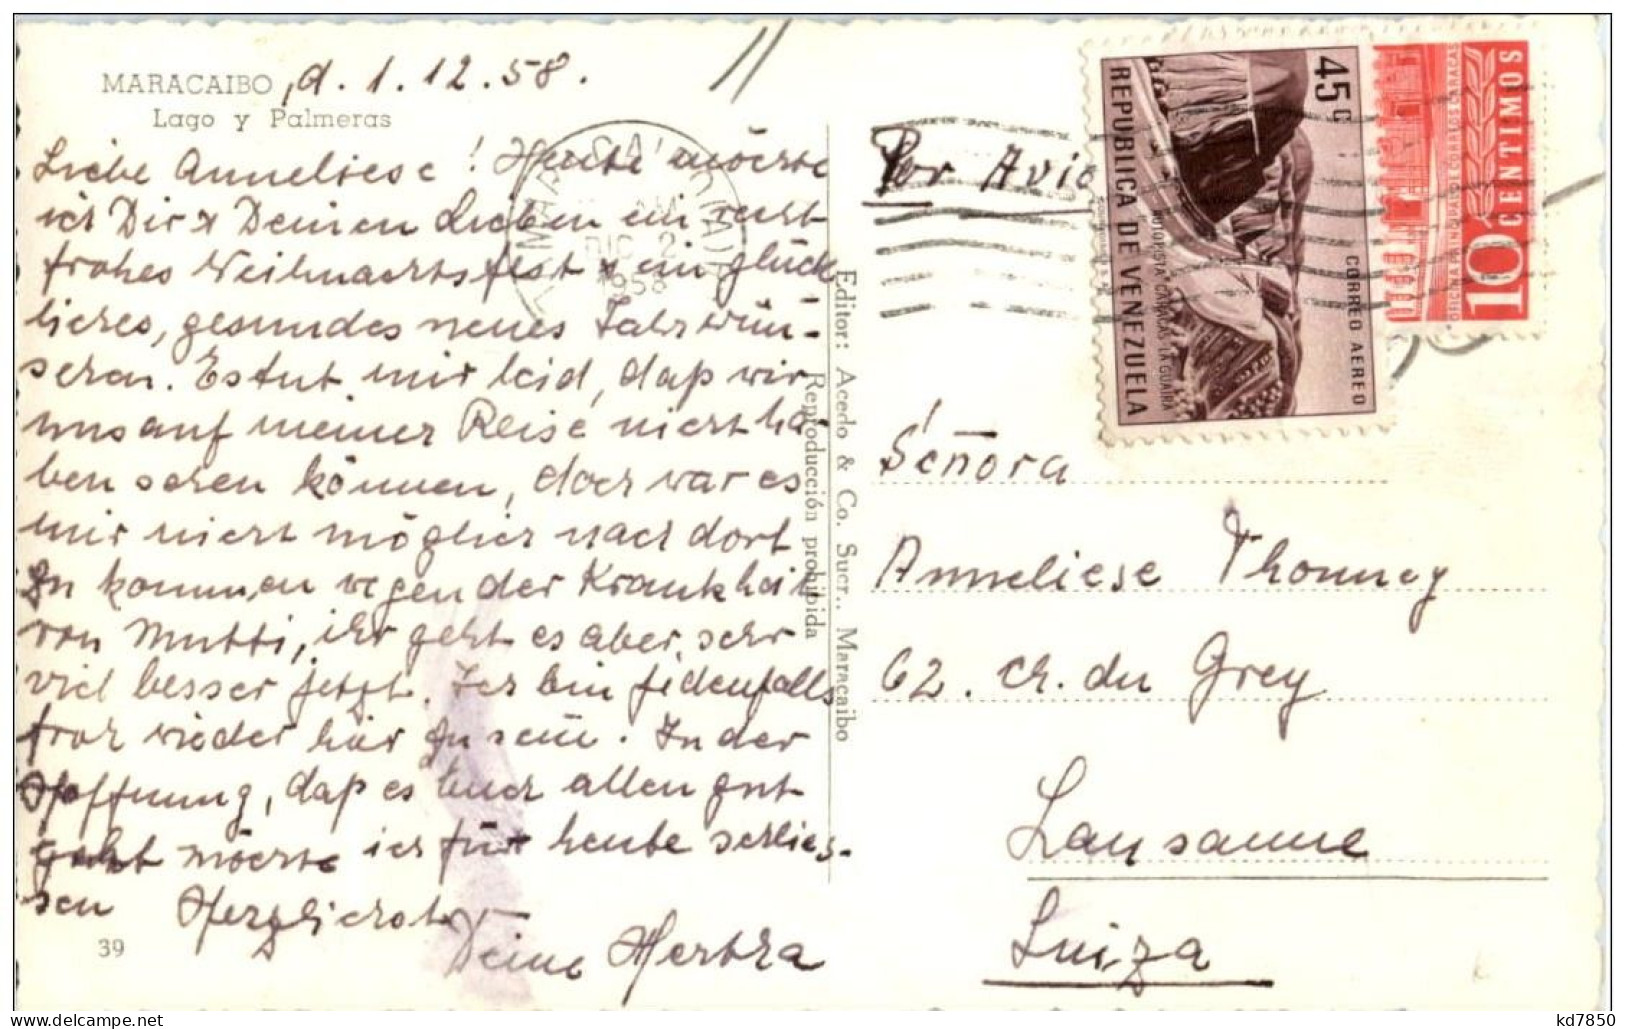 MARACAIBO, d. 1.12.58.
Lago y Palmeras
Liebe Anneliese! Heute möchte
ich Dir & Deinen Lieben ein recht
frohes Weihnachtsfest & ein glück
liches, gesundes neues Jahr wün-
schen. Es tut mir leid, daß wir
uns auf meiner Reise nicht ha
ben sehen können, doch war es
mir nicht möglich nach dort
zu kommen wegen der Krankheit
von Mutti, ihr geht es aber sehr
viel besser jetzt. Ich bin jedenfalls
froh wieder hier zu sein. In der
Hoffnung, daß es Euch allen gut
geht möchte ich für heute schlies-
sen Herzlichst
Deine Hertha
39
Editor: Acedo & Co. Sucr., Maracaibo
Reproducción prohibida
MARACAIBO
DIC 2
1958
Por Avio
45 C
REPUBLICA DE VENEZUELA
AUTOPISTA CARACAS-LA GUAIRA
CORREO AEREO
OFICINA PRINCIPAL DE CORREOS CARACAS
10 CENTIMOS
Señora
Anneliese Thonney
62. ch. du Grey
Lausanne
Suiza
kd7850